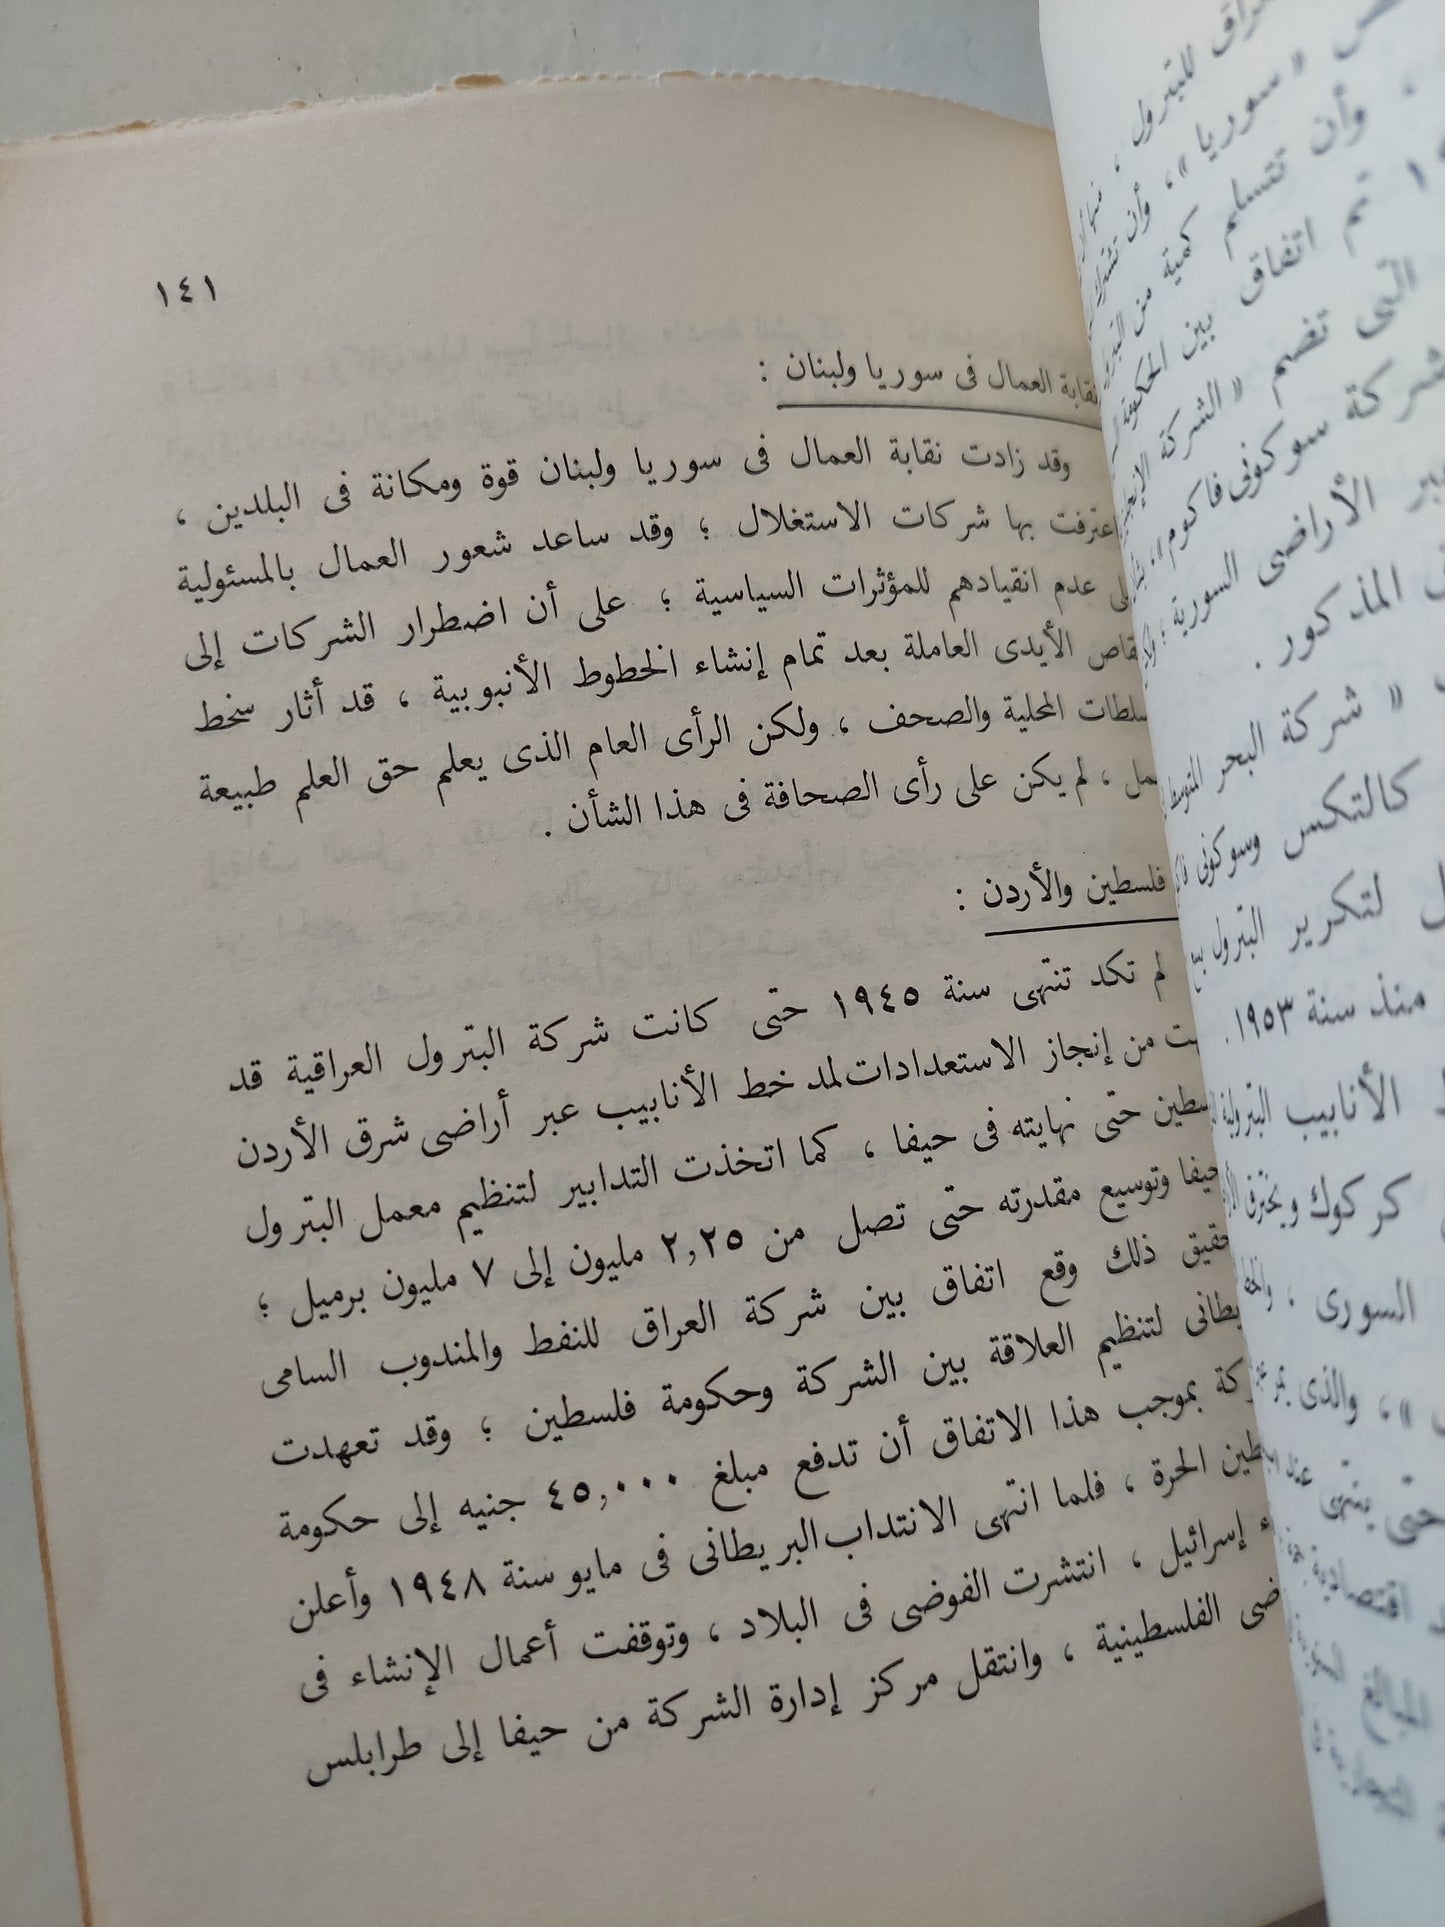 ١٤١
نقابة العمال فى سوريا ولبنان :
وقد زادت نقابة العمال فى سوريا ولبنان قوة ومكانة فى البلدين ،
اعترفت بها شركات الاستغلال ؛ وقد ساعد شعور العمال بالمسئولية
عدم انقيادهم للمؤثرات السياسية ؛ على أن اضطرار الشركات إلى
الأيدى العاملة بعد تمام إنشاء الخطوط الأنبوبية ، قد أثار سخط
المحلية والصحف ، ولكن الرأى العام الذى يعلم حق العلم طبيعة
، لم يكن على رأى الصحافة فى هذا الشأن .
فلسطين والأردن :
لم تكد تنتهى سنة ١٩٤٥ حتى كانت شركة البترول العراقية قد
من إنجاز الاستعدادات لمد خط الأنابيب عبر أراضى شرق الأردن
حتى نهايته فى حيفا ، كما اتخذت التدابير لتنظيم معمل البترول
حيفا وتوسيع مقدرته حتى تصل من ٢,٢٥ مليون إلى ٧ مليون برميل ؛
ذلك وقع اتفاق بين شركة العراق للنفط والمندوب السامى
لتنظيم العلاقة بين الشركة وحكومة فلسطين ؛ وقد تعهدت
بموجب هذا الاتفاق أن تدفع مبلغ ٤٥,٠٠٠ جنيه إلى حكومة
الحرة ، فلما انتهى الانتداب البريطانى فى مايو سنة ١٩٤٨ وأعلن
إسرائيل ، انتشرت الفوضى فى البلاد ، وتوقفت أعمال الإنشاء فى
الفلسطينية ، وانتقل مركز إدارة الشركة من حيفا إلى طرابلس
للبترول ،
« سوريا » ، وأن تشترك
، وأن تتسلم كمية من البترول
تم اتفاق بين الحكومة
التى تضم « الشركة
شركة سوكونى فاكوم » ،
الأراضى السورية ؛
المذكور .
« شركة البحر المتوسط
كالتكس وسوكونى
لتكرير البترول
منذ سنة ١٩٥٣ .
الأنابيب البترولية
كركوك ويخترق
السورى ،
» ، والذى يمر
حتى ينتهى عند
اقتصادية